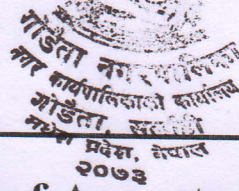 गोडैता नगरपालिका
नगर कार्यपालिकाको कार्यालय
गोडैता, सर्लाही
मधेश प्रदेश, नेपाल
२०७३